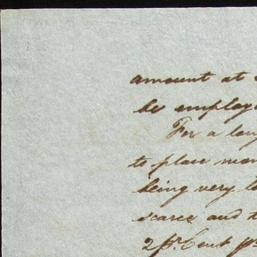 amount at
be employ
For a long
to place mon
being very l
scarce and t
2 pr. Cent pr